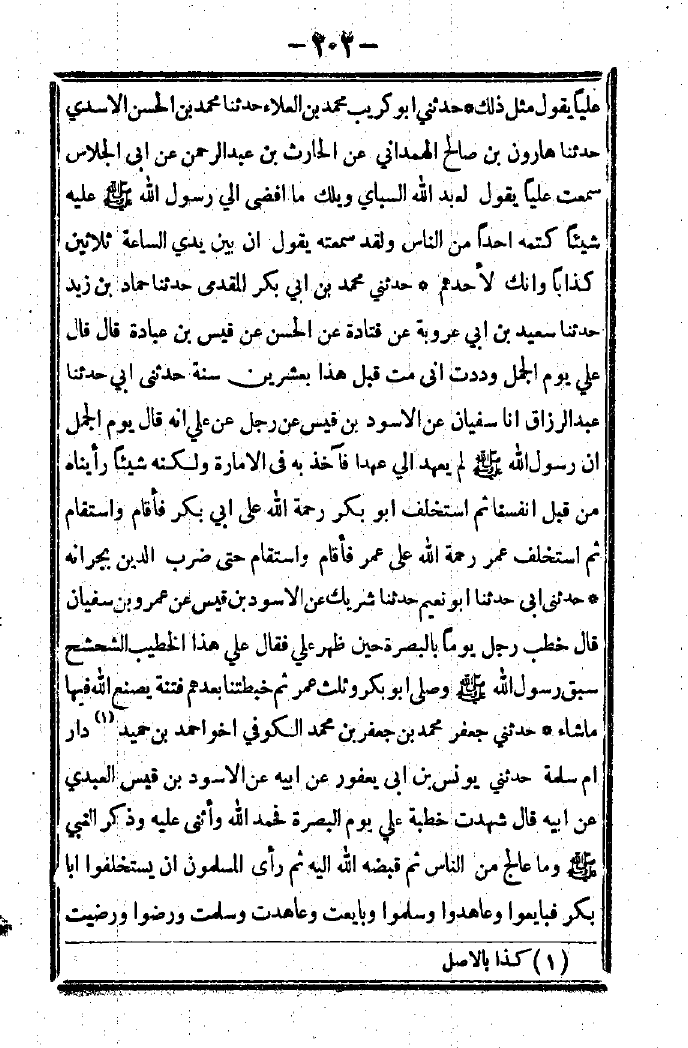 -٢٠٣-
علياً يقول مثل ذلك * حدثني ابو كريب محمد بن العلاء حدثنا محمد بن الحسن الاسدي
حدثنا هارون بن صالح الهمداني عن الحارث بن عبدالرحمن عن ابي الجلاس
سمعت علياً يقول لعبد الله السباي ويلك ما افضى الي رسول الله ﷺ عليه
شيئاً كتمه احداً من الناس ولقد سمعته يقول ان بين يدي الساعة ثلاثين
كذاباً وانك لأحدهم * حدثني محمد بن ابي بكر المقدمى حدثنا حماد بن زيد
حدثنا سعيد بن ابي عروبة عن قتادة عن الحسن عن قيس بن عبادة قال قال
علي يوم الجمل وددت انى مت قبل هذا بعشرين سنة حدثنى ابي حدثنا
عبدالرزاق انا سفيان عن الاسود بن قيس عن رجل عن علي انه قال يوم الجمل
ان رسول الله ﷺ لم يعهد الي عهدا فآخذ به فى الامارة ولكنه شيئاً رأيناه
من قبل انفسنا ثم استخلف ابو بكر رحمة الله على ابي بكر فأقام واستقام
ثم استخلف عمر رحمة الله على عمر فأقام واستقام حتى ضرب الدين بجرانه
* حدثنى ابى حدثنا ابو نعيم حدثنا شريك عن الاسود بن قيس عن عمرو بن سفيان
قال خطب رجل يوماً بالبصرة حين ظهر علي فقال علي هذا الخطيب الشحشح
سبق رسول الله ﷺ وصلى ابو بكر وثلث عمر ثم خبطتنا بعدهم فتنة يصنع الله فيها
ماشاء * حدثني جعفر محمد بن جعفر بن محمد الكوفي اخو احمد بن حميد (١) دار
ام سلمة حدثني يونس بن ابى يعفور عن ابيه عن الاسود بن قيس العبدي
عن ابيه قال شهدت خطبة علي يوم البصرة فحمد الله وأثنى عليه وذكر النبي
ﷺ وما عالج من الناس ثم قبضه الله اليه ثم رأى المسلمون ان يستخلفوا ابا
بكر فبايعوا وعاهدوا وسلموا وبايعت وعاهدت وسلمت ورضوا ورضيت
(١) كذا بالاصل